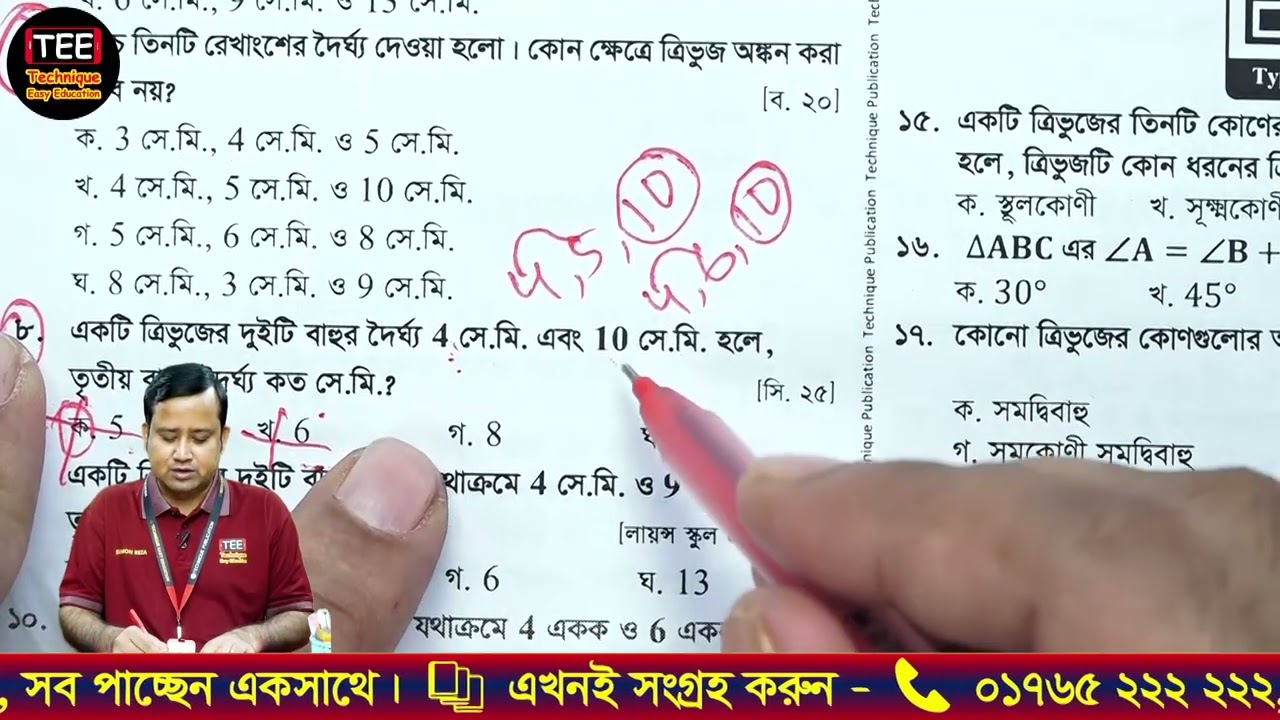 খ. 6 সে.মি., 9 সে.মি. ও 13 সে.মি.
TEE
Technique
Easy Education
তিনটি রেখাংশের দৈর্ঘ্য দেওয়া হলো। কোন ক্ষেত্রে ত্রিভুজ অঙ্কন করা
নয়?
[ব. ২০]
ক. 3 সে.মি., 4 সে.মি. ও 5 সে.মি.
খ. 4 সে.মি., 5 সে.মি. ও 10 সে.মি.
গ. 5 সে.মি., 6 সে.মি. ও 8 সে.মি.
ঘ. 8 সে.মি., 3 সে.মি. ও 9 সে.মি.
4, 5, 10
4, 6, 10
৮. একটি ত্রিভুজের দুইটি বাহুর দৈর্ঘ্য 4 সে.মি. এবং 10 সে.মি. হলে,
তৃতীয় দৈর্ঘ্য কত সে.মি.?
[সি. ২৫]
ক. 5 খ. 6 গ. 8
একটি দুইটি যথাক্রমে 4 সে.মি. ও 9
[লায়ন্স স্কুল
গ. 6 ঘ. 13
১০. যথাক্রমে 4 একক ও 6
Technique Publication Technique Publication Technique Publication
১৫. একটি ত্রিভুজের তিনটি কোণের
হলে, ত্রিভুজটি কোন ধরনের
ক. স্থূলকোণী খ. সূক্ষ্মকোণী
১৬. ΔABC এর ∠A = ∠B +
ক. 30° খ. 45°
১৭. কোনো ত্রিভুজের কোণগুলোর
ক. সমদ্বিবাহু
গ. সমকোণী সমদ্বিবাহু
TEE
Technique
সব পাচ্ছেন একসাথে। এখনই সংগ্রহ করুন - ০১৭৬৫ ২২২ ২২২,